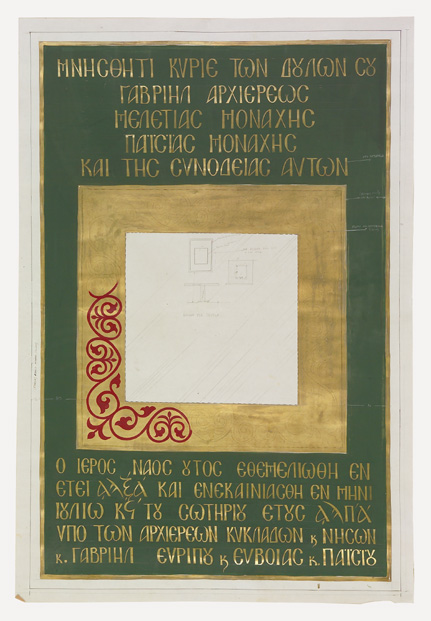 ΜΝΗϹΘΗΤΙ ΚΥΡΙΕ ΤΩΝ ΔȢΛΩΝ ϹȢ
ΓΑΒΡΙΗΛ ΑΡΧΙΕΡΕΩϹ
ΜΕΛΕΤΙΑϹ ΜΟΝΑΧΗϹ
ΠΑΪϹΙΑϹ ΜΟΝΑΧΗϹ
ΚΑΙ ΤΗϹ ϹΥΝΟΔΕΙΑϹ ΑΥΤΩΝ
Ο ΙΕΡΟϹ ΝΑΟϹ ȢΤΟϹ ΕΘΕΜΕΛΙΩΘΗ ΕΝ
ΕΤΕΙ ͵ΑϠΞΑ ΚΑΙ ΕΝΕΚΑΙΝΙΑϹΘΗ ΕΝ ΜΗΝΙ
ΙȢΛΙΩ ΚϚ ΤȢ ϹΩΤΗΡΙȢ ΕΤȢϹ ͵ΑϠΠΑ
ΥΠΟ ΤΩΝ ΑΡΧΙΕΡΕΩΝ ΚΥΚΛΑΔΩΝ ϗ ΝΗϹΩΝ
κ. ΓΑΒΡΙΗΛ ΕΥΡΙΠȢ ϗ ΕΥΒΟΙΑϹ κ. ΠΑΪϹΙȢ